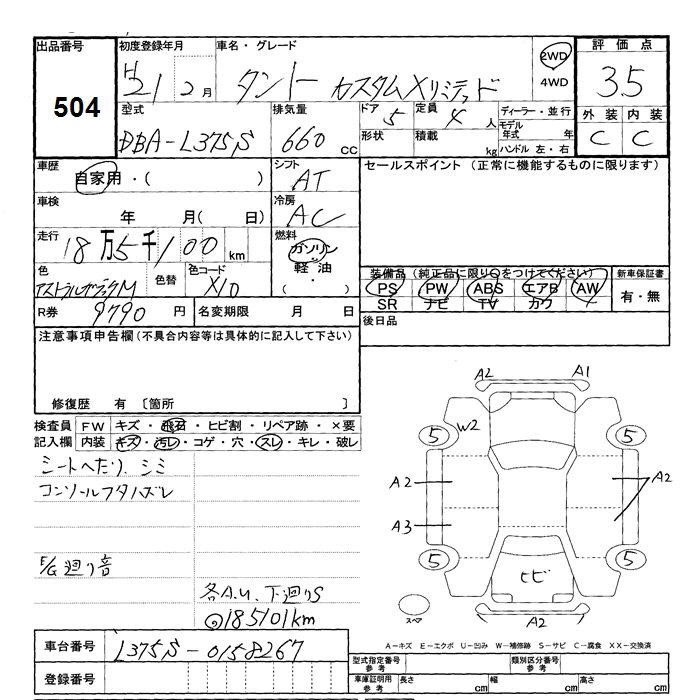 出品番号 初度登録年月 車名・グレード 2WD 評価点
504 H21 2月 タント カスタムXリミテッド 4WD 3.5
型式 排気量 ドア 5 定員 4人 ディーラー・並行 外装 内装
DBA-L375S 660cc 形状 積載 kg モデル年式 年 C C
ハンドル 左・右
車歴 シフト セールスポイント (正常に機能するものに限ります)
自家用・( ) AT
車検 冷房
年 月( 日) AC
走行 燃料
18万5千100km ガソリン
軽油
・( )
色 色替 色コード 装備品(純正品に限り○をつけてください) 新車保証書
M X10 PS PW ABS エアB AW 有・無
SR ナビ TV カワ
R券 9790円 名変期限 月 日 後日品
注意事項申告欄(不具合内容等は具体的に記入して下さい)
修復歴 有 〔箇所 〕
検査員 FW キズ・飛石・ヒビ割・リペア跡・×要
記入欄 内装 キズ・汚レ・コゲ・穴・スレ・キレ・破レ
シートヘたり、シミ
コンソールフタハズレ
E/G廻り音
各A.U.下廻りS
@185101km
A2 A1
5 W2 5
A2 A2
A3
5 ヒビ 5
スペア A2
A-キズ E-エクボ U-凹み W-補修跡 S-サビ C-腐食 XX-交換済
車台番号 L375S-0158267
登録番号
型式指定番号 参考 類別区分番号 参考
車庫証明用 参考 長さ cm 幅 cm 高さ cm